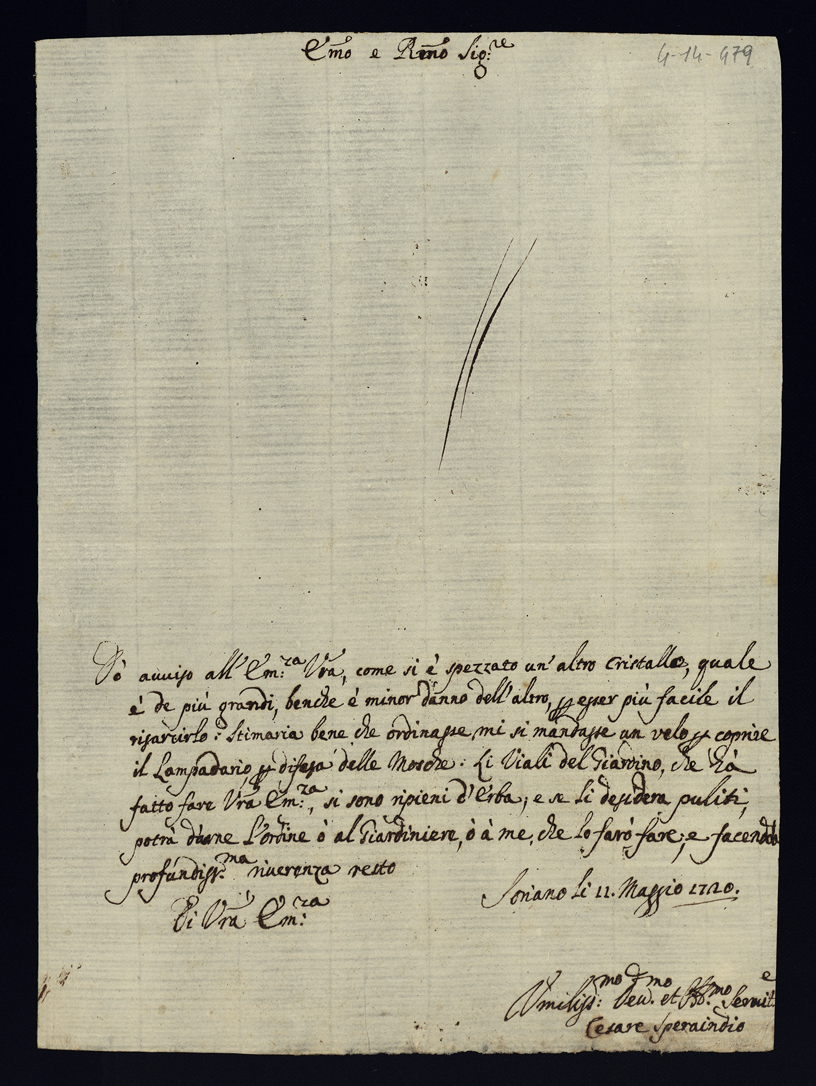 Em̃o e Rm̃o Sig:re
4-14-479
Dò auuiso all'Em:za Vrã, come si è spezzato un'altro Cristallo, quale
è de più grandi, benche è minor danno dell'altro, ꝑ esser più facile il
risarcirlo: Stimaria bene che ordinasse mi si mandasse un velo ꝑ coprire
il Lampadario ꝑ difesa delle Mosche: Li Viali del Giardino, che hà
fatto fare Vrã Em:za, si sono ripieni d'Erba; e se li desidera puliti,
potrà darne L'ordine ò al Giardiniere, ò à me, che lo farò fare; e facendole
profundiss:ma riuerenza resto
Di Vrã Em:za
Soriano li 11. Maggio 1720.
Vmiliss:mo Deu:mo et Obb:mo Seruit.e
Cesare Speraindio